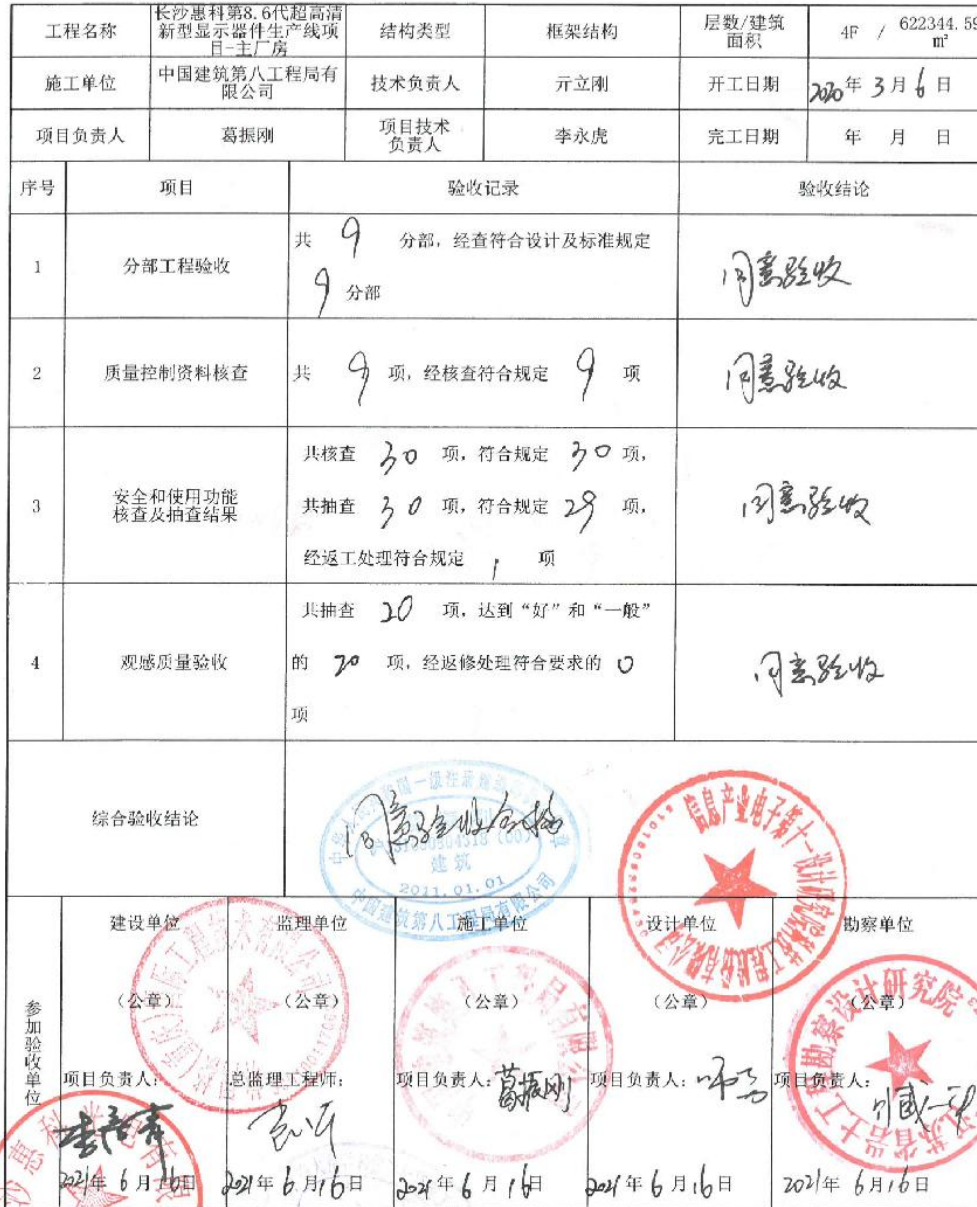 工程名称
长沙惠科第8.6代超高清
新型显示器件生产线项
目-主厂房
结构类型
框架结构
层数/建筑
面积
4F / 622344.59
m²
施工单位
中国建筑第八工程局有
限公司
技术负责人
亓立刚
开工日期
2020年 3月 6日
项目负责人
葛振刚
项目技术
负责人
李永虎
完工日期
年 月 日
序号
项目
验收记录
验收结论
1
分部工程验收
共 9 分部，经查符合设计及标准规定
9 分部
同意验收
2
质量控制资料核查
共 9 项，经核查符合规定 9 项
同意验收
3
安全和使用功能
核查及抽查结果
共核查 30 项，符合规定 30 项，
共抽查 30 项，符合规定 29 项，
经返工处理符合规定 1 项
同意验收
4
观感质量验收
共抽查 20 项，达到“好”和“一般”
的 20 项，经返修处理符合要求的 0
项
同意验收
综合验收结论
同意验收合格
建筑
2011.01.01
中国建筑第八工程局有限公司
信息产业电子第十一设计研究院科技工程股份有限公司
参加验收单位
建设单位
（公章）
项目负责人：
2021年 6月16日
监理单位
（公章）
总监理工程师：
2021年 6月16日
施工单位
（公章）
项目负责人：葛振刚
2021年 6月16日
设计单位
（公章）
项目负责人：
2021年 6月16日
勘察单位
（公章）
项目负责人：
2021年 6月16日
江苏省岩土工程勘察设计研究院